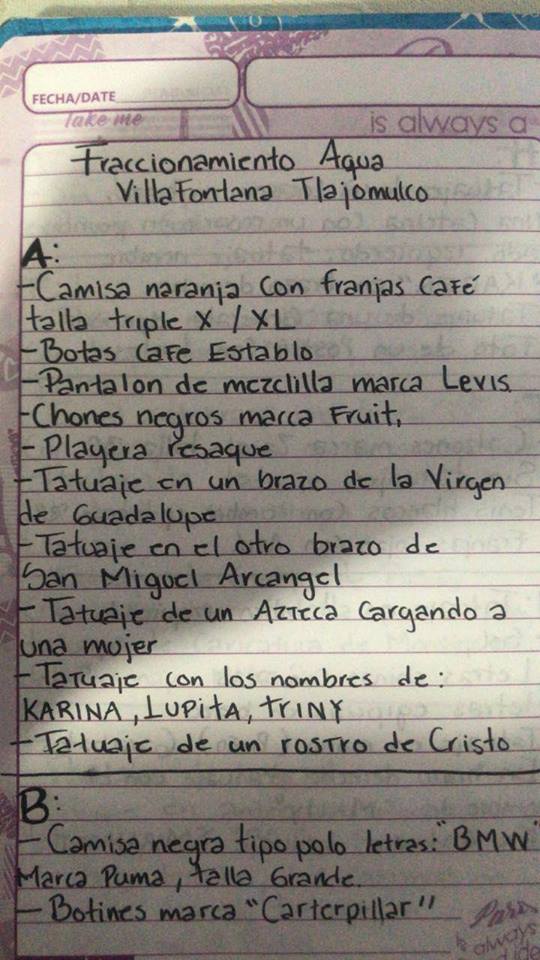 FECHA/DATE
Take me
is always a
Fraccionamiento Agua
Villa Fontana Tlajomulco
A:
-Camisa naranja con franjas Café
talla triple X / XL
-Botas Cafe Establo
-Pantalon de mezclilla marca Levis
-Chones negros marca Fruit,
- Playera resaque
-Tatuaje en un brazo de la Virgen
de Guadalupe
-Tatuaje en el otro brazo de
San Miguel Arcangel
- Tatuaje de un Azteca Cargando a
una mujer
-Tatuaje con los nombres de:
KARINA, LUPITA, TRINY
-Tatuaje de un rostro de Cristo
B:
- Camisa negra tipo polo letras: "BMW"
Marca Puma, talla Grande.
- Botines marca "Carterpillar"
Paris
is always